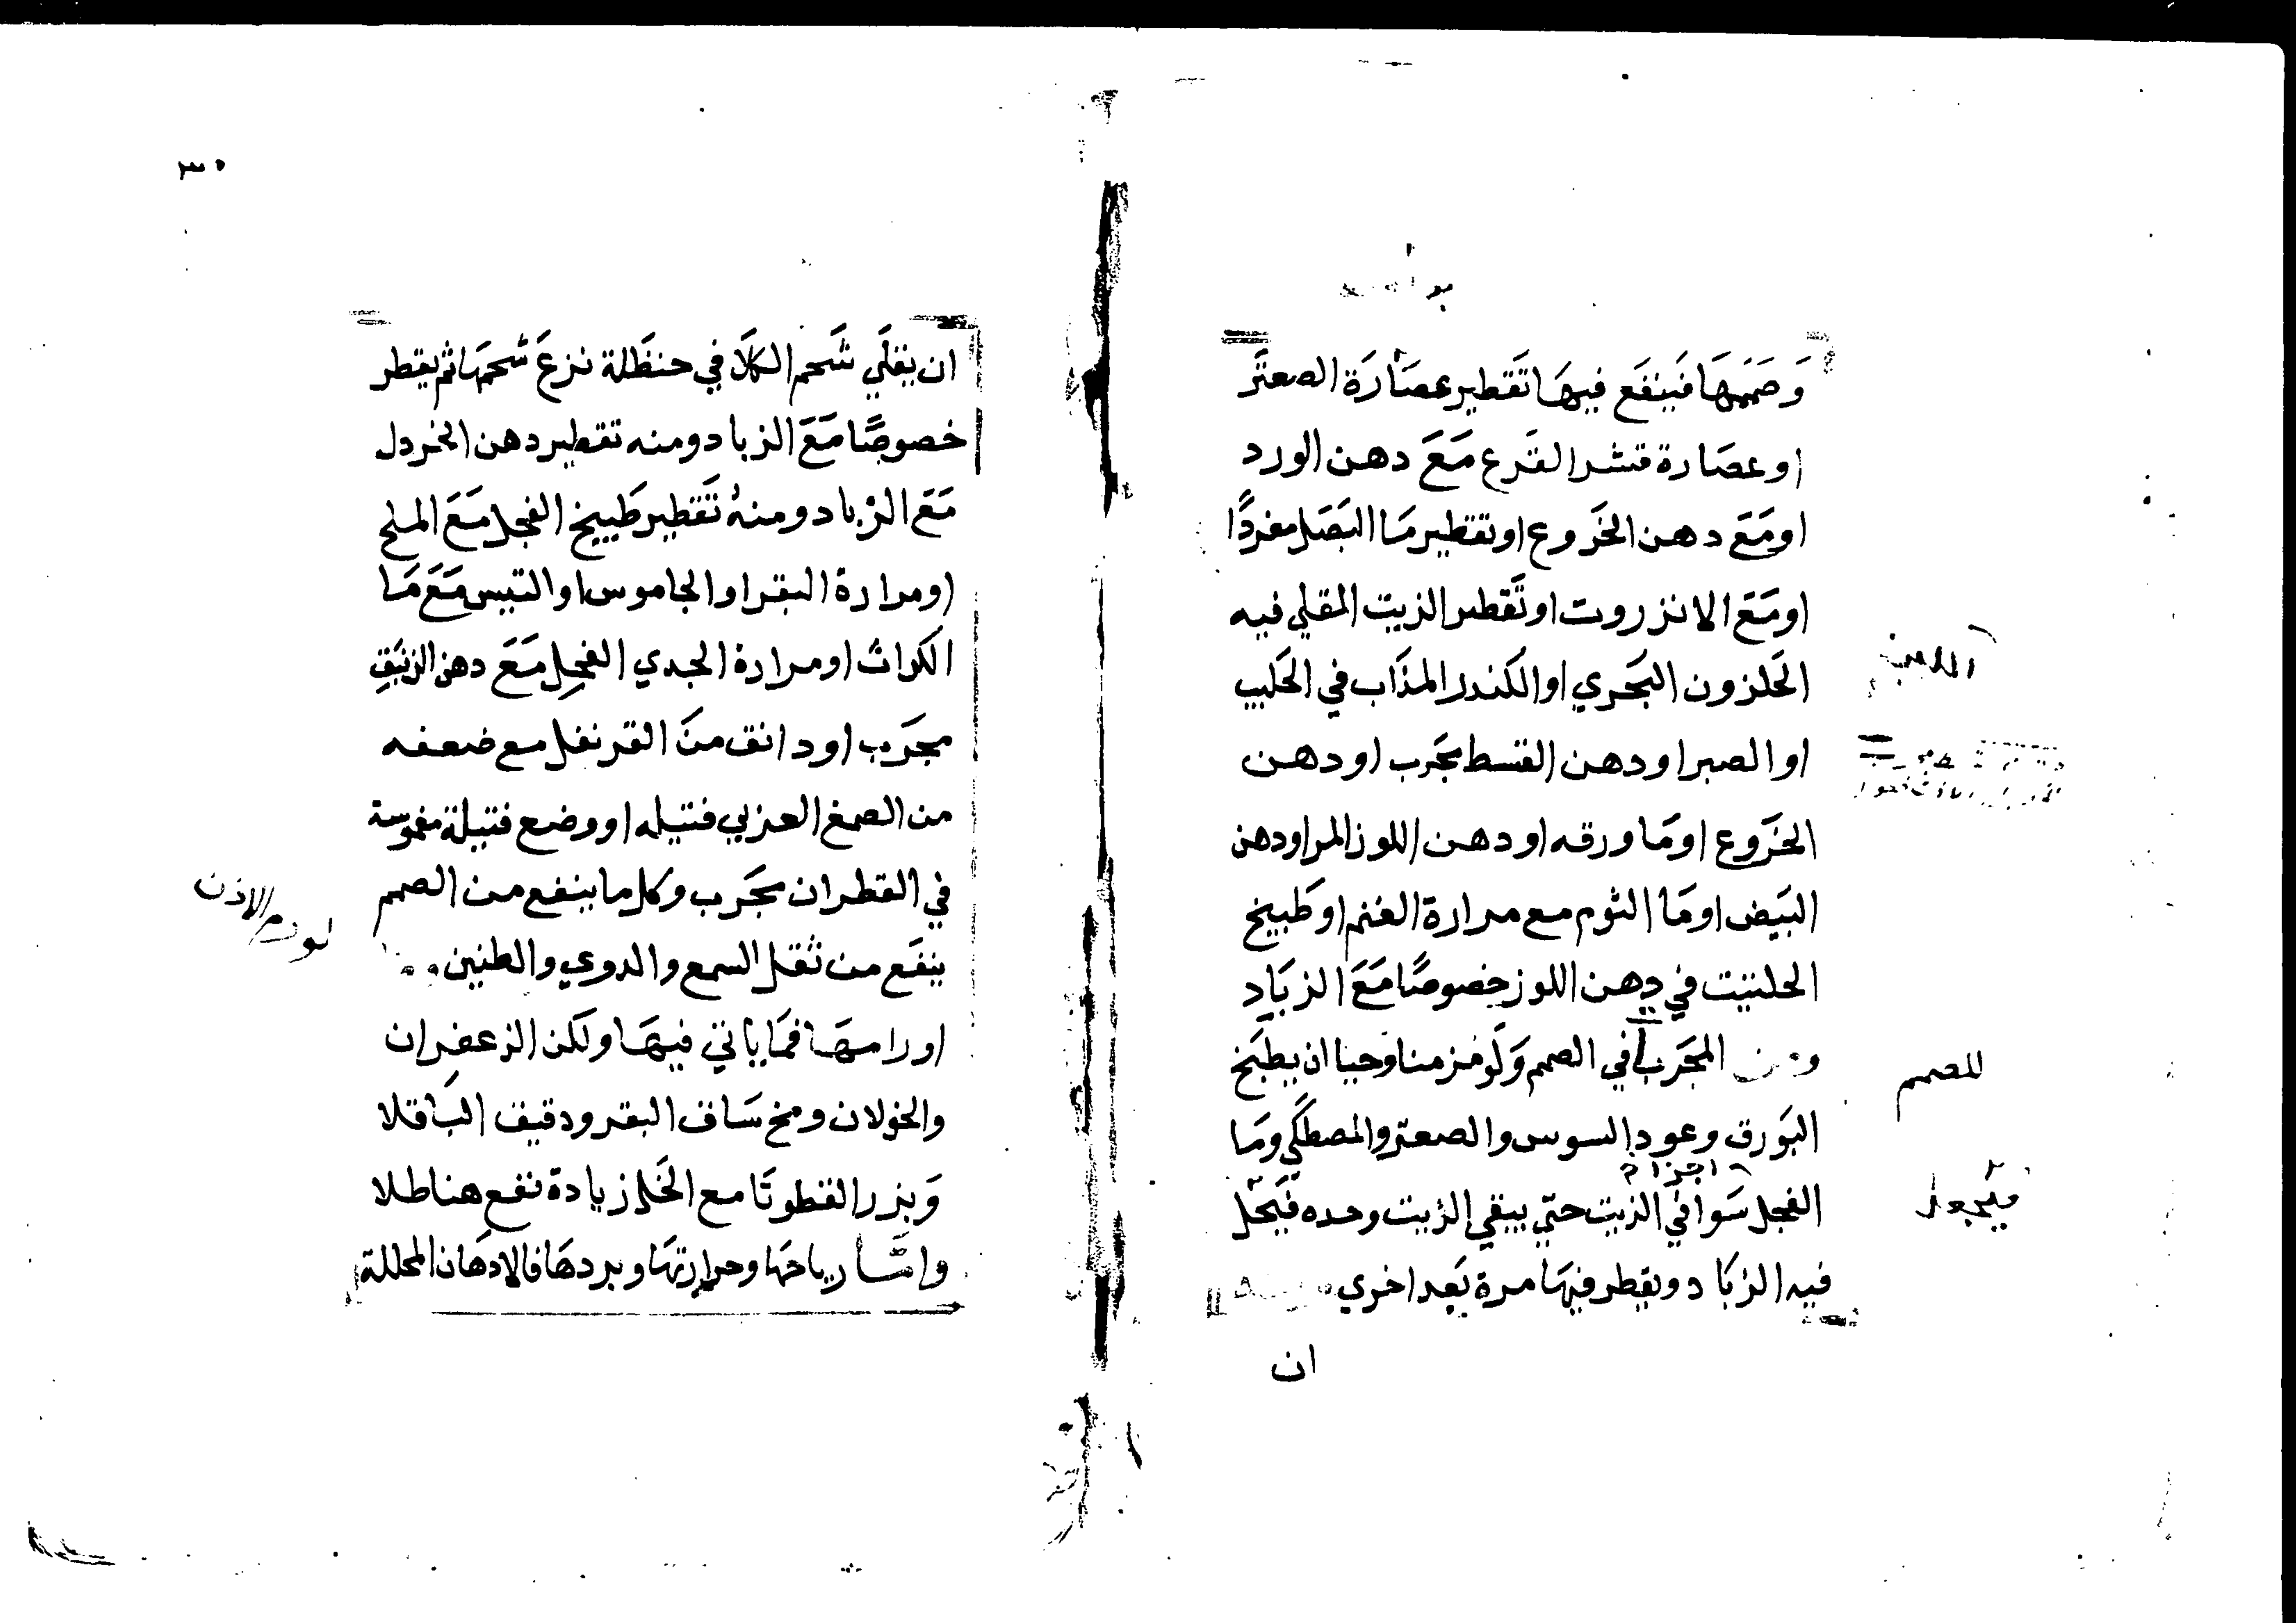 وَصَمَمِهَا فَيَنفَع فيهَا تَقطير عصَارَة الصعتَر
او عصَارة قشر القَرع مَعَ دهن الورد
او مَعَ دهن الخَروع او تقطير مَا البَصَل مفردًا
او مَعَ الانزروت او تَقطير الزيت المقلي فيه
الحَلزون البَحَري او الكَندر المذَاب في الحَليب
او الصبر او دهن القسط مجَرب او دهن
الخَروع او مَا ورقه او دهن اللوز المر او دهن
البَيض او مَا الثوم مع مرارة الغنم او طَبيخ
الحلتيت في دهن اللوز خصوصًا مَعَ الزبَاد
المجَرب في الصمم وَلَو مزمنا وحيا ان يطبَخ
البَورق وعود السوس والصعتر والمصطكي ومَا
اجزا
الفجل سَوا في الزيت حتي يبقي الزيت وحده فَيحَل
فيه الزبَاد ويقطر فيهَا مرة بَعد اخري
ان
للصمم
٣٠
ان يغلَي شَحم الكلَا في حنظَلة نزعَ شَحمهَا ثم يقطر
خصوصًا مَعَ الزباد ومنه تقطير دهن الخردل
مَعَ الزباد ومنهُ تَقطير طَبيخ الفجل مَعَ الملح
او مرارة البقر او الجاموس او التيس مَعَ مَا
الكراث او مرارة الجدي الفحل مَعَ دهن الزنبَق
مجَرب او دانق منَ القرنفل مع ضعفه
من الصمغ العربي فتيله او وضع فتيلة مغموسة
في القطران مجَرب وكل ما ينفع من الصمم
ينفَع من ثقل السمع والدوي والطنين
اورامهَا فمَا ياتي فيهَا ولَكن الزعفران
والخولان ومخ سَاق البقر ودقيق البَاقلا
وَبزر القطونَا مع الخَل زيادة نفع هنا طلا
وامَّا رياحهَا وحرارتهَا وبردهَا فالادهَان المحللة
لورم الاذن